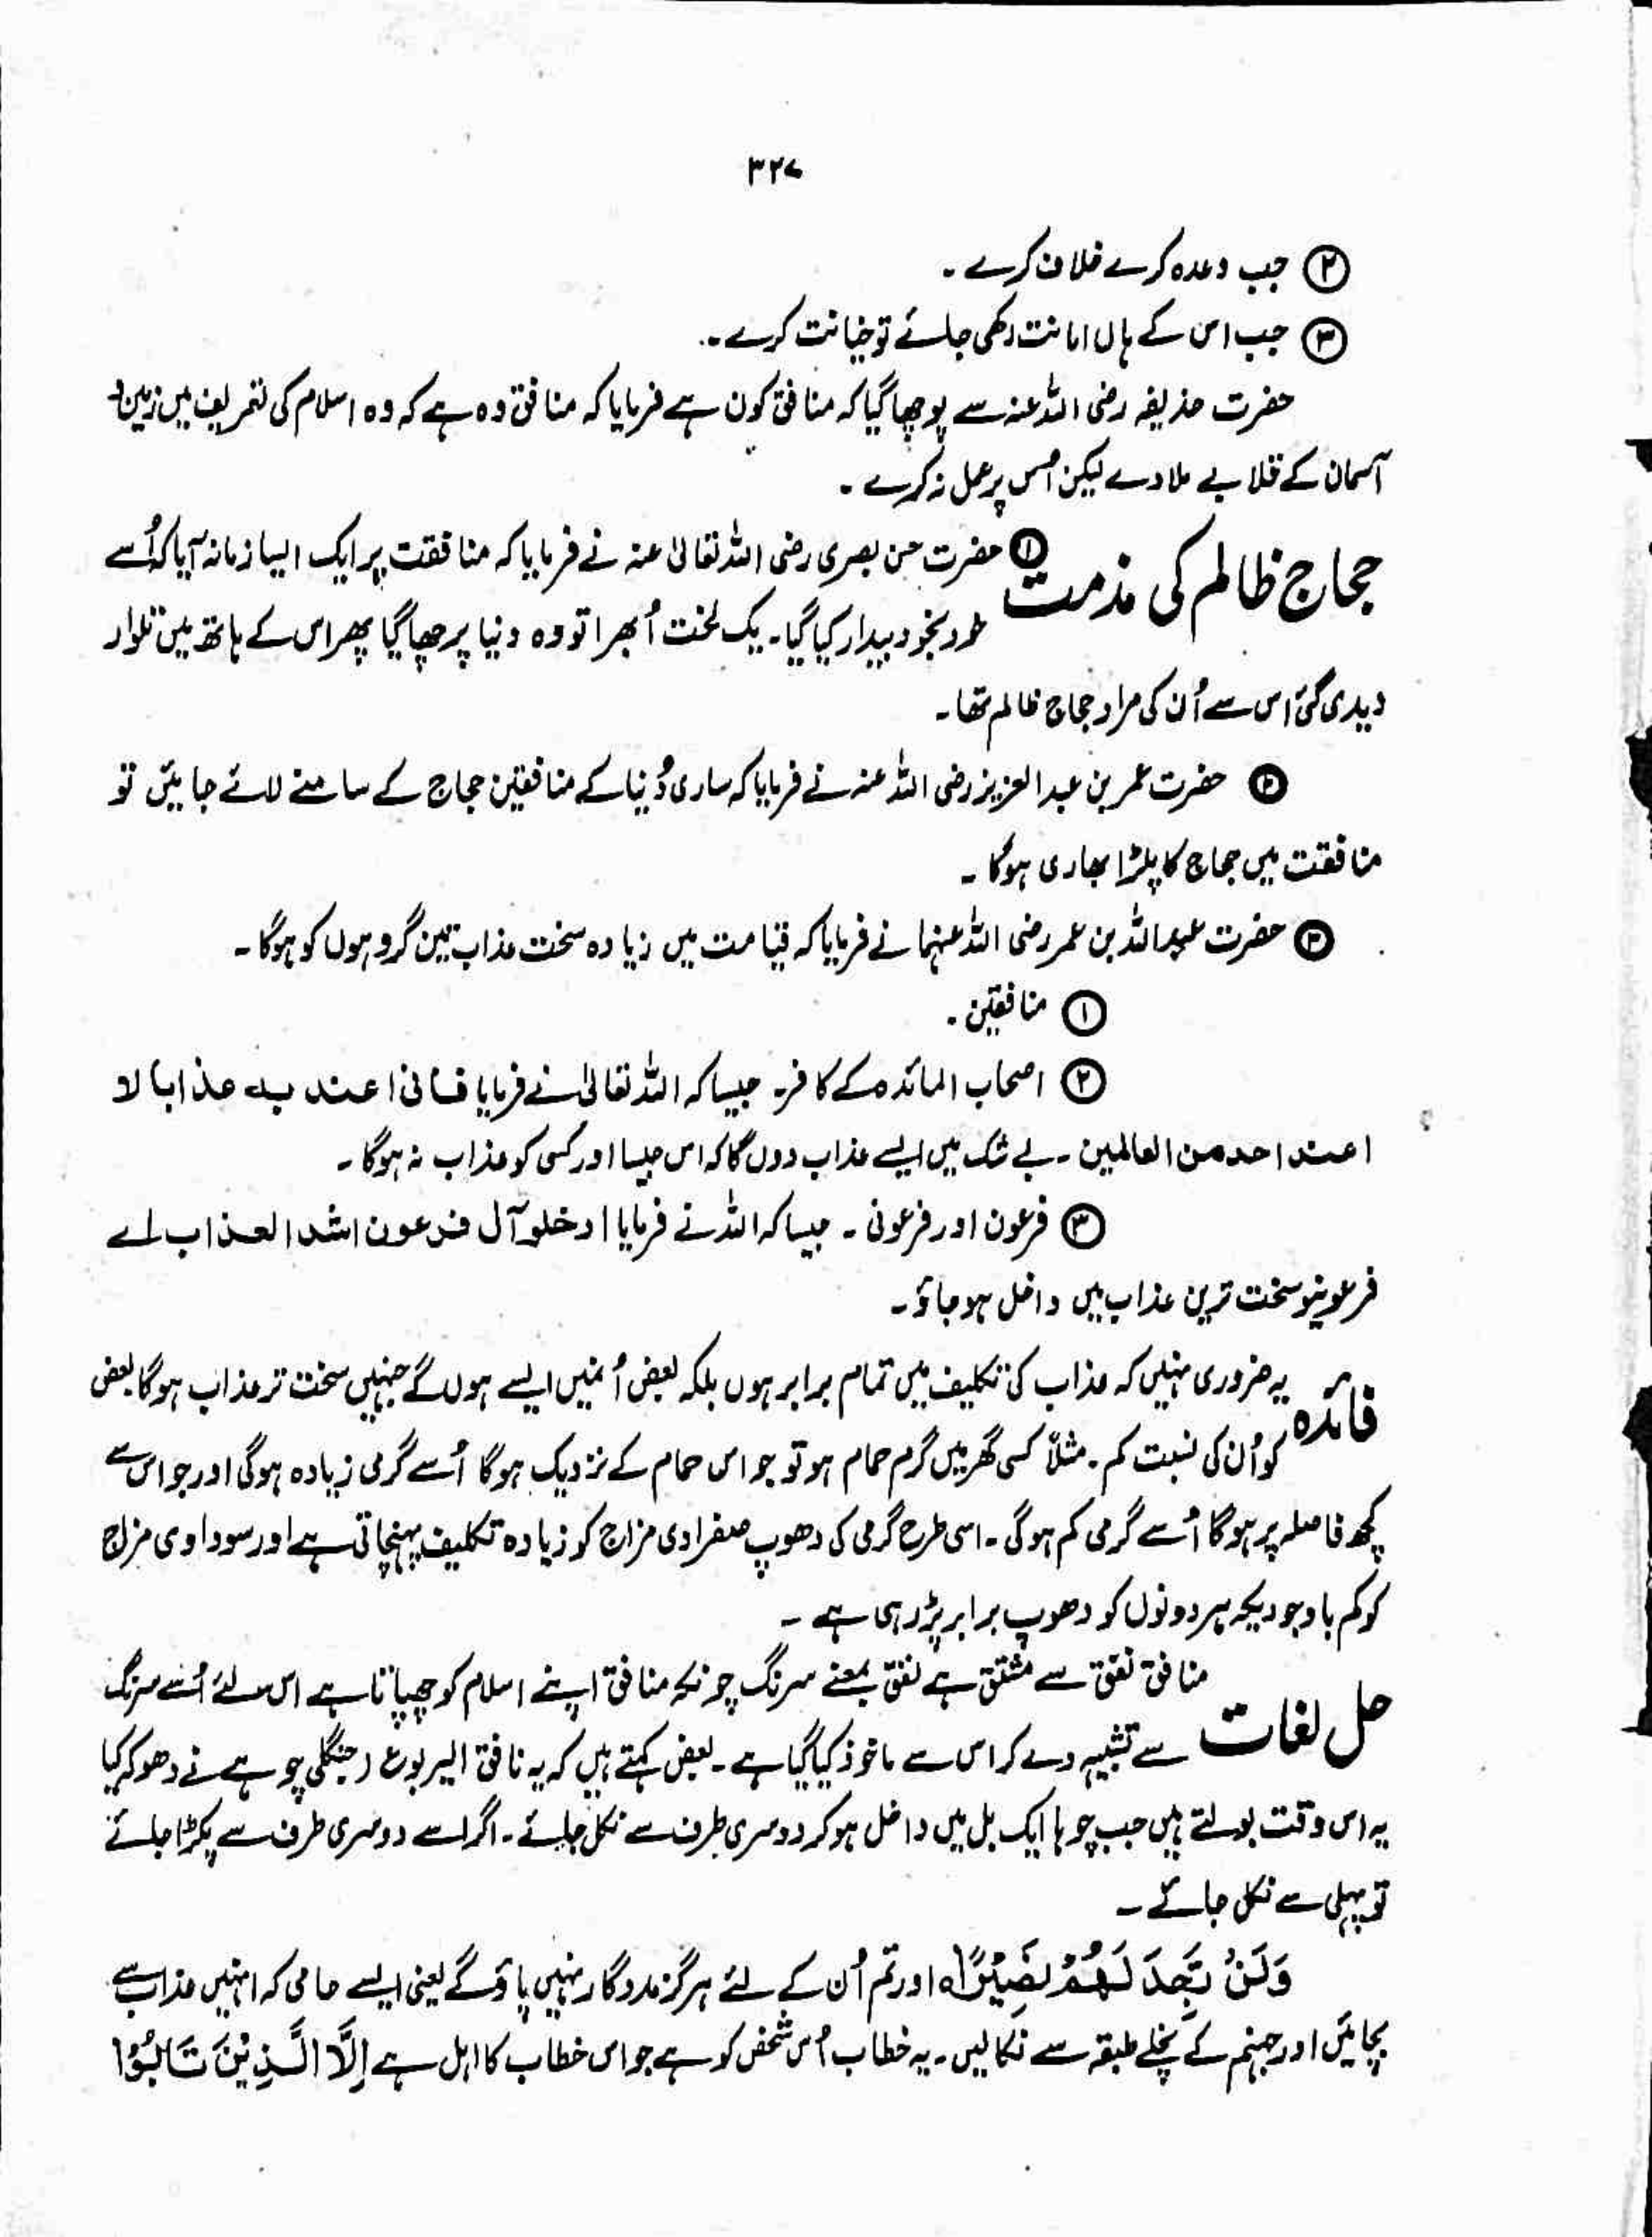 ۳۲۷
② جب وعدہ کرے خلاف کرے ۔
③ جب اس کے ہاں امانت رکھی جائے تو خیانت کرے ۔
حضرت حذیفہ رضی اللہ عنہ سے پوچھا گیا کہ منافق کون ہے فرمایا کہ منافق وہ ہے کہ وہ اسلام کی تعریف میں زمین و
آسمان کے قلابے ملا دے لیکن اُس پر عمل نہ کرے ۔
حجاج ظالم کی مذمت ① حضرت حسن بصری رضی اللہ تعالیٰ عنہ نے فرمایا کہ منافقت پر ایک ایسا زمانہ آیا کہ اُسے
بخود بیدار کیا گیا ۔ یک لخت اُبھرا تو وہ دنیا پر چھا گیا پھر اس کے ہاتھ میں تلوار
دیدی گئی اس سے اُن کی مراد حجاج ظالم تھا ۔
② حضرت عمر بن عبد العزیز رضی اللہ عنہ نے فرمایا کہ ساری دُنیا کے منافقین حجاج کے سامنے لائے جائیں تو
منافقت میں حجاج کا پلڑا بھاری ہوگا ۔
③ حضرت عبداللہ بن عمر رضی اللہ عنہما نے فرمایا کہ قیامت میں زیادہ سخت عذاب تین گروہوں کو ہوگا ۔
① منافقین ۔
② اصحاب المائدہ کے کافر ۔ جیسا کہ اللہ تعالیٰ نے فرمایا فانی اعذبہ عذابا لا
اعذبہ احد من العالمین ۔ بے شک میں ایسے عذاب دوں گا کہ اس جیسا اور کسی کو عذاب نہ ہوگا ۔
③ فرعون اور فرعونی ۔ جیسا کہ اللہ نے فرمایا ادخلو آل فرعون اشد العذاب اے
فرعونیو سخت ترین عذاب میں داخل ہو جاؤ ۔
فائدہ یہ ضروری نہیں کہ عذاب کی تکلیف میں تمام برابر ہوں بلکہ بعض اُنمیں ایسے ہوں گے جنہیں سخت تر عذاب ہوگا بعض
کو اُن کی نسبت کم ۔ مثلاً کسی گھر میں گرم حمام ہو تو جو اس حمام کے نزدیک ہوگا اُسے گرمی زیادہ ہوگی اور جو اس سے
کچھ فاصلہ پر ہوگا اُسے گرمی کم ہوگی ۔ اسی طرح گرمی کی دھوپ صفراوی مزاج کو زیادہ تکلیف پہنچاتی ہے اور سوداوی مزاج
کو کم باوجودیکہ ہر دونوں کو دھوپ برابر پڑ رہی ہے ۔
حل لغات منافق نفق سے مشتق ہے نفق بمعنے سرنگ چونکہ منافق اپنے اسلام کو چھپاتا ہے اس لئے اُسے سرنگ
سے تشبیہ دے کر اس سے ماخوذ کیا گیا ہے ۔ بعض کہتے ہیں کہ یہ نافق الیربوع (جنگلی چوہے نے دھوکہ کیا
یہ اس وقت بولتے ہیں جب چوہا ایک بل میں داخل ہو کر دوسری طرف سے نکل جائے ۔ اگر اسے دوسری طرف سے پکڑا جائے
تو پہلی سے نکل جائے ۔
وَلَنْ تَجِدَ لَهُمْ نَصِيْرًا ہ اور تم اُن کے لئے ہرگز مددگار نہیں پاؤ گے یعنی ایسے حامی کہ انہیں عذاب سے
بچائیں اور جہنم کے نچلے طبقہ سے نکالیں ۔ یہ خطاب اُس شخص کو ہے جو اس خطاب کا اہل ہے اِلَّا الَّذِيْنَ تَابُوْا